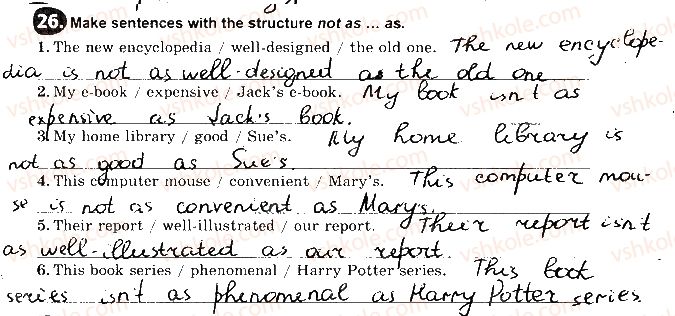 26. Make sentences with the structure not as ... as.
1. The new encyclopedia / well-designed / the old one. The new encyclope-
dia is not as well-designed as the old one
2. My e-book / expensive / Jack's e-book. My book isn't as
expensive as Jack's book.
3. My home library / good / Sue's. My home library is
not as good as Sue's.
4. This computer mouse / convenient / Mary's. This computer mou-
se is not as convenient as Marys.
5. Their report / well-illustrated / our report. Their report isn't
as well-illustrated as our report.
6. This book series / phenomenal / Harry Potter series. This book
series isn't as phenomenal as Harry Potter series.